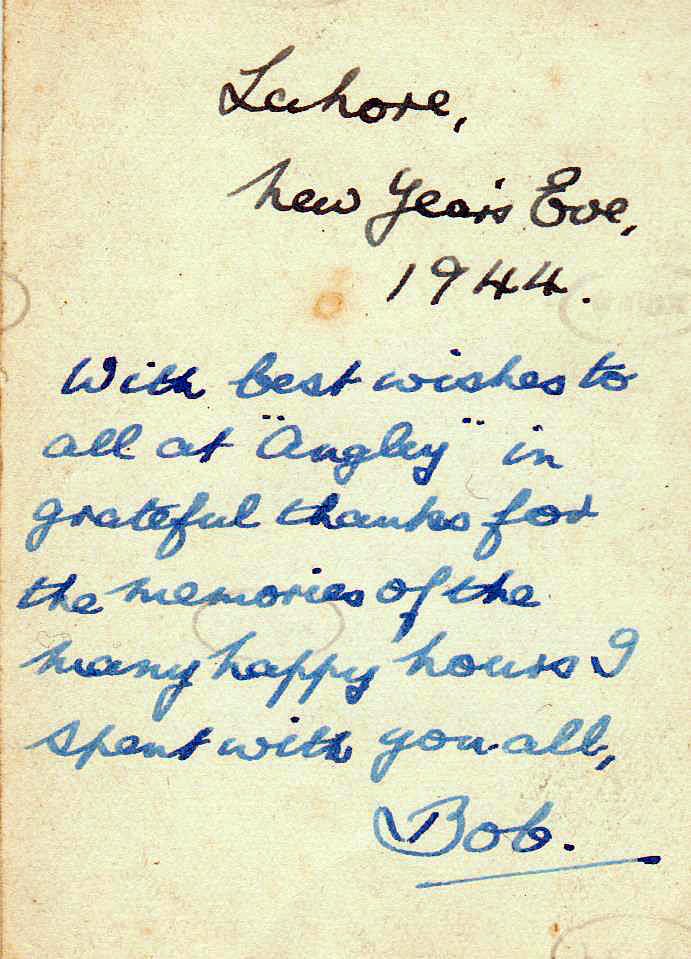 Lahore,
New Year's Eve,
1944.
With best wishes to
all at "Angley" in
grateful thanks for
the memories of the
many happy hours I
spent with you all,
Bob.